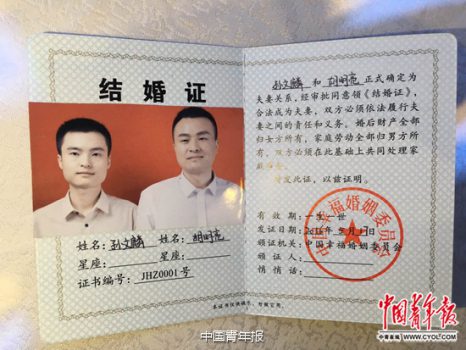 结婚证
姓名：孙文麟 姓名：胡明亮
星座： 星座：
证书编号：JHZ0001号
孙文麟 和 胡明亮 正式确定为
夫妻关系，经审批同意领《结婚证》，
合法成为夫妻，双方必须依法履行夫
妻之间的责任和义务。婚后财产全部
归女方所有，家庭劳动全部归男方所
有，双方必须在此基础上共同处理家
特发此证，以兹证明。
有效期：一生一世
发证日期：2016年5月17日
颁证机关：中国幸福婚姻委员会
颁证人：
悄悄话：
中国幸福婚姻委员会
中国青年报
中国青年报
中青在线 WWW.CYOL.COM